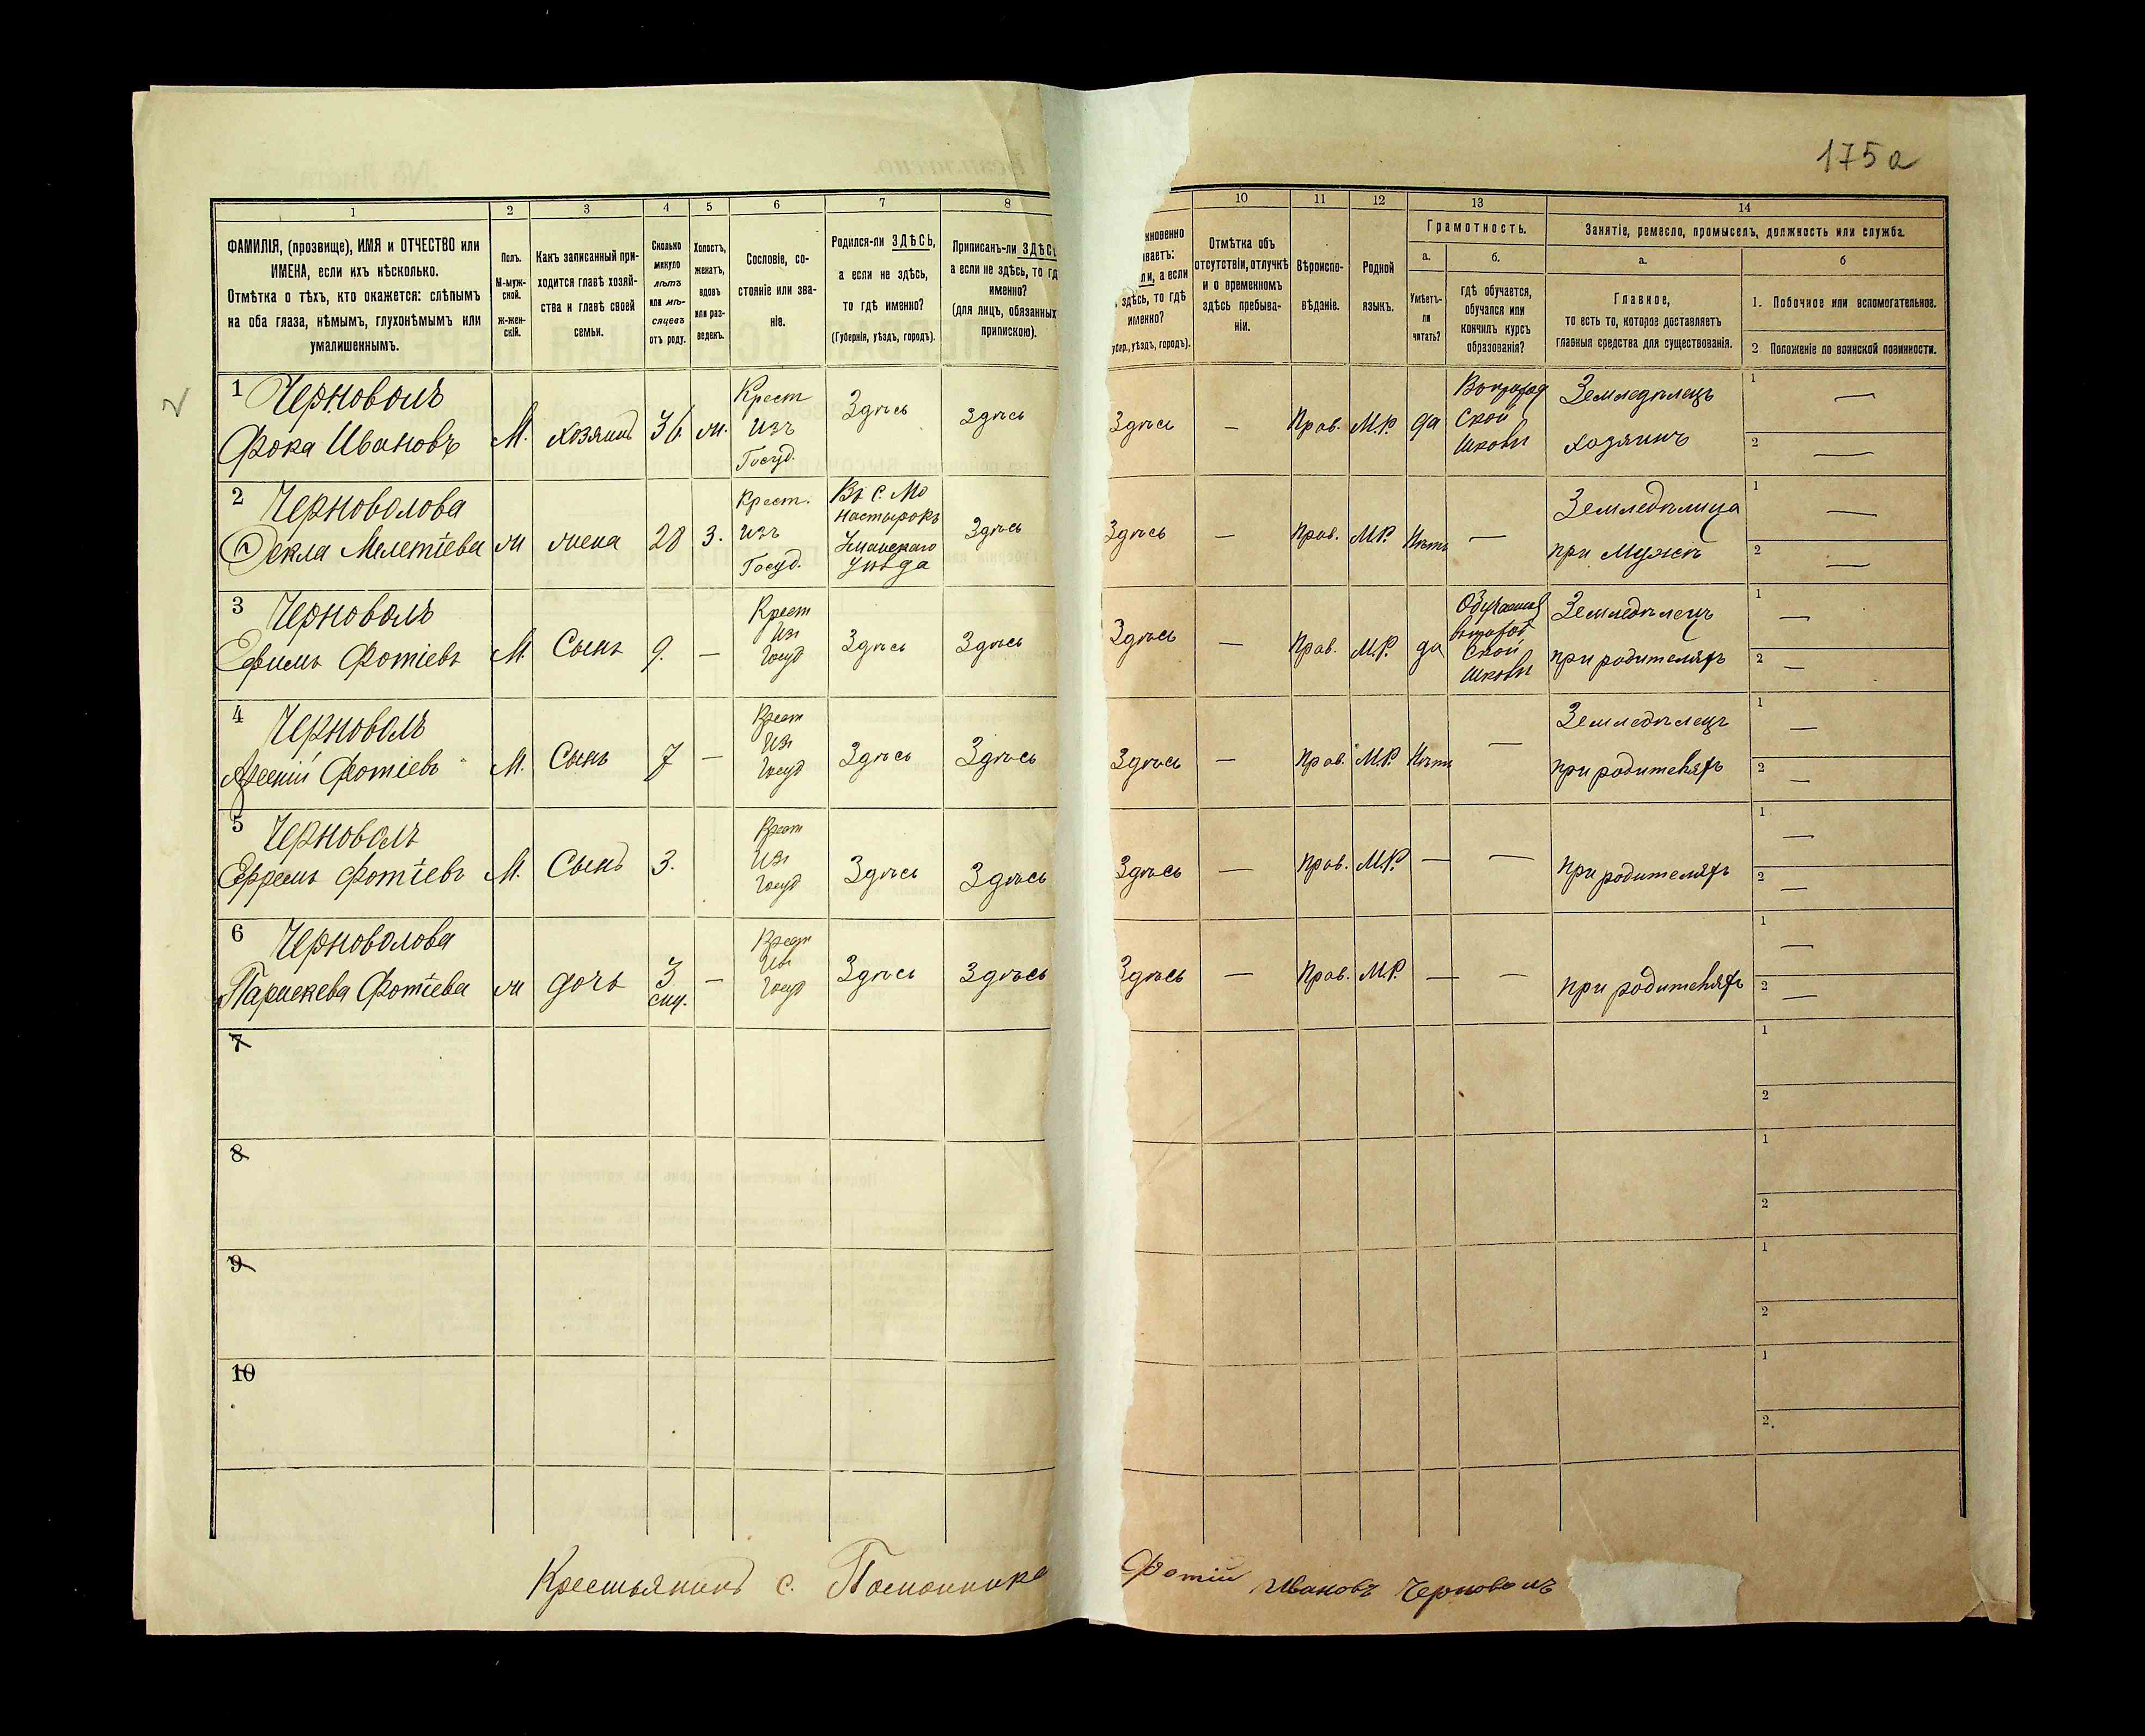 175а
1
2
3
4
5
6
7
8
10
11
12
13
14
ФАМИЛІЯ, (прозвище), ИМЯ и ОТЧЕСТВО или
ИМЕНА, если ихъ нѣсколько.
Отмѣтка о тѣхъ, кто окажется: слѣпымъ
на оба глаза, нѣмымъ, глухонѣмымъ или
умалишеннымъ.
Полъ.
М-муж-
ской.
ж-жен-
скій.
Какъ записанный при-
ходится главѣ хозяй-
ства и главѣ своей
семьи.
Сколько
минуло
лѣтъ
или мѣ-
сяцевъ
отъ роду.
Холостъ,
женатъ,
вдовъ
или раз-
веденъ.
Сословіе, со-
стояніе или зва-
ніе.
Родился-ли ЗДѢСЬ,
а если не здѣсь,
то гдѣ именно?
(Губернія, уѣздъ, городъ).
Приписанъ-ли ЗДѢСЬ
а если не здѣсь, то гд
именно?
(для лицъ, обязанных
припискою).
кновенно
ваетъ:
ли, а если
здѣсь, то гдѣ
именно?
убер., уѣздъ, городъ).
Отмѣтка объ
отсутствіи, отлучкѣ
и о временномъ
здѣсь пребыва-
ніи.
Вѣроиспо-
вѣданіе.
Родной
языкъ.
Грамотность.
а.
Умѣетъ-
ли
читать?
б.
гдѣ обучается,
обучался или
кончилъ курсъ
образованія?
Занятіе, ремесло, промыселъ, должность или служба.
а.
Главное,
то есть то, которое доставляетъ
главныя средства для существованія.
б
1. Побочное или вспомогательное.
2 Положеніе по воинской повинности.
1 Черноволъ
Фока Ивановъ
М.
хозяинъ
36
ж.
Крест
изъ
Госуд.
Здѣсь
Здѣсь
Здѣсь
—
Прав.
М.Р.
да
ской
школы
Земледѣлецъ
хозяинъ
1 —
2 —
2 Черноволова
Ѳекла Мелетіева
ж
жена
28
з.
Крест.
изъ
Госуд.
Въ с. Мо
настырокъ
Уманскаго
Уѣзда
Здѣсь
Здѣсь
—
Прав.
М.Р.
Нѣтъ
—
Земледѣлица
при Мужѣ
1 —
2 —
3 Черноволъ
Ефимъ Фотіевъ
М.
Сынъ
9.
—
Крест
Изъ
Госуд
Здѣсь
Здѣсь
Здѣсь
—
Прав.
М.Р.
да
ской
школы
Земледѣлецъ
при родителяхъ
1 —
2 —
4 Черноволъ
Арсеній Фотіевъ
М.
Сынъ
7
—
Крест
Изъ
Госуд
Здѣсь
Здѣсь
Здѣсь
—
Прав.
М.Р.
Нѣтъ
—
Земледѣлецъ
при родителяхъ
1 —
2 —
5 Черноволъ
Ефремъ Фотіевъ
М.
Сынъ
3.
Крест
Изъ
Госуд
Здѣсь
Здѣсь
Здѣсь
—
Прав.
М.Р.
—
—
при родителяхъ
1 —
2 —
6 Черноволова
Параскева Фотіева
ж
дочь
3
—
Крест
Изъ
Госуд
Здѣсь
Здѣсь
Здѣсь
—
Прав.
М.Р.
—
—
при родителяхъ
1 —
2 —
7
1
2
8
1
2
9
1
2
10
1
2.
Крестьянинъ с. Фотій Ивановъ Черноволъ